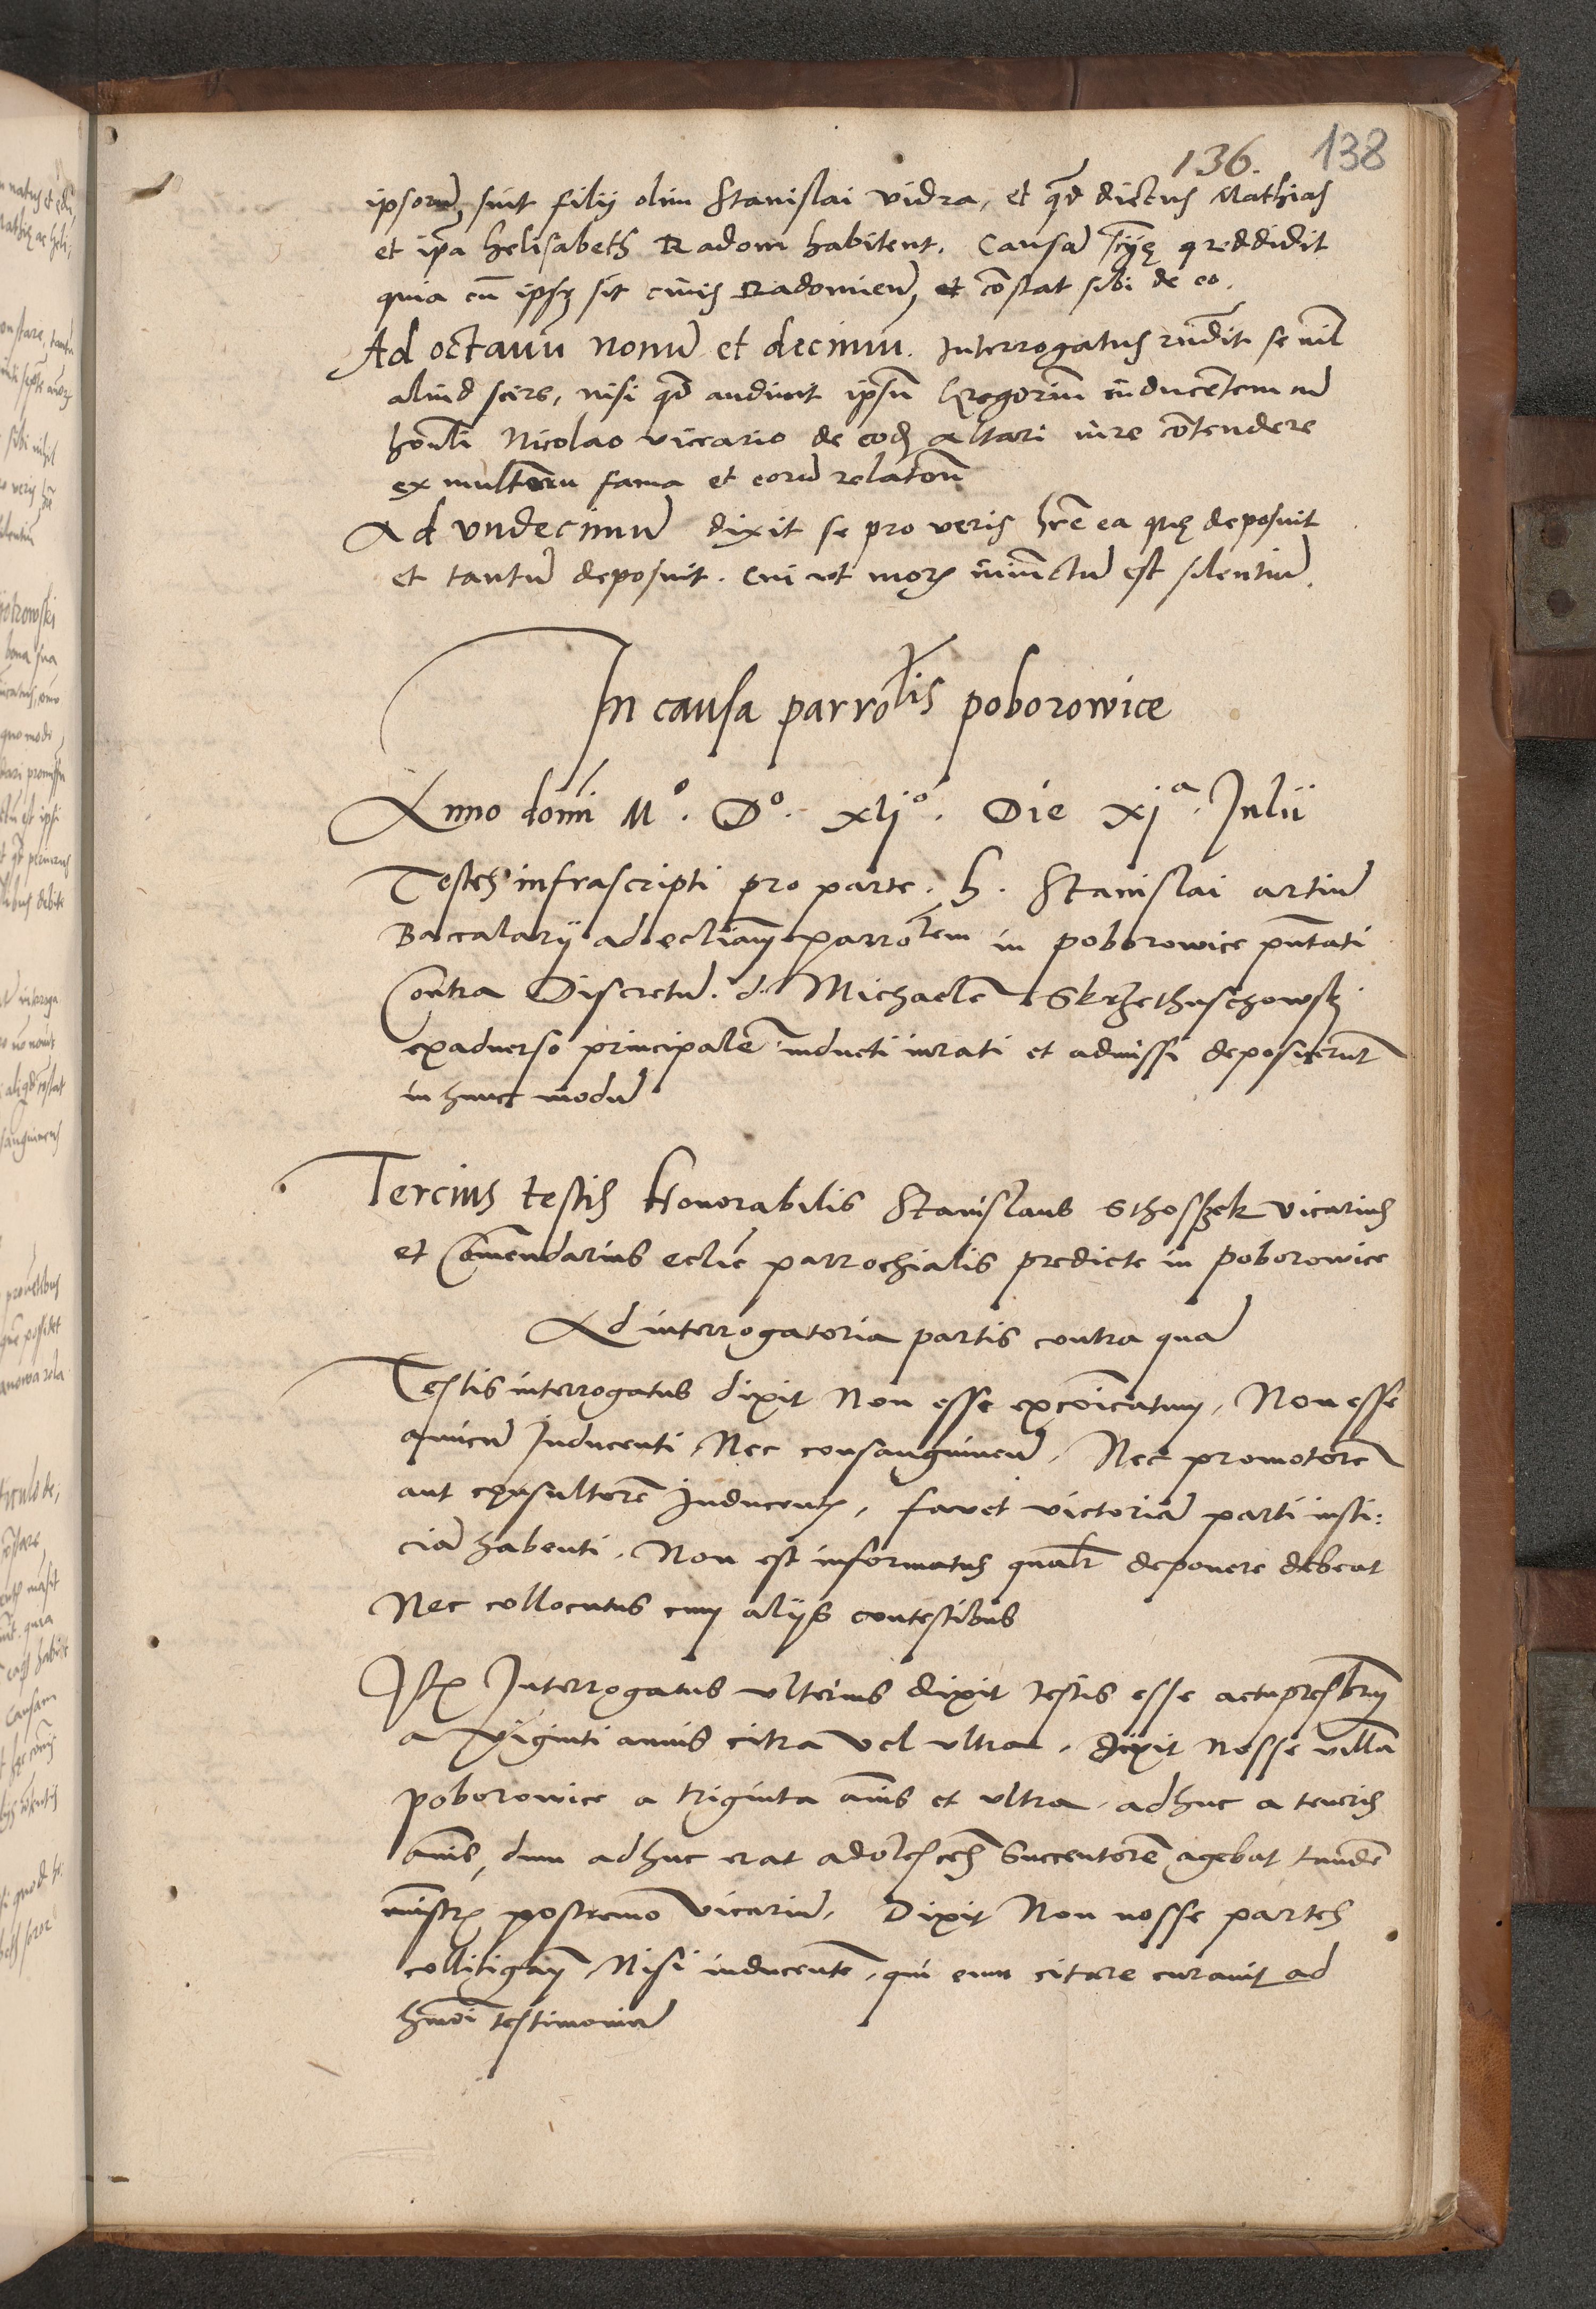 136. 138
ipsorum sint filij olim Stanislai vidra, et quod dictus Mathias
et ipa helisabeth Radom habitent. Causam scie reddidit
quia cum ipse sit civis Radomien, et constat sibi de eo.
Ad octavum nonum et decimum. Interrogatus rndit se nil
aliud scire, nisi quod audivit ipsum Gregorium inducentem cum
honli Nicolao viccario de eodem altari iure contendere
ex multorum fama et eorum relatione
Ad vndecimum dixit se pro veris hre ea quę deposuit
et tantum deposuit. Cui vt moris iniunctum est silentium.
In causa parrolis poborowice
Anno domi Mº. Dº. xljº. Die xjª. Julii
Testes infrascripti pro parte. h. Stanislai artium
Baccalarij ad ecliam parrolem in poborowice pntati
Contra Discretum. d. Michaelem Skrzethuschowsky
exaduerso principalem inducti iurati et admissi deposuerunt
in hunc modum
Tercius testis Honorabilis Stanislaus Sthosszek vicarius
et Comendarius eclie parrochialis predicte in poborowice
Ad interrogatoria partis contra quam
Testis interrogatus dixit Non esse excoicatum, Non esse
amicum Inducenti, Nec consanguineum, Nec promotorem
aut consultorem Inducentis, favet victoriam parti iusti:
ciam habenti. Non est informatus qualr deponere debeat
Nec collocutus cum alijs contestibus
Item Interrogatus vlterius dixit testis esse actu presbrum
a viginti annis citra vel vltra. dixit Nosse villam
poborowice a triginta annis et vltra, adhuc a teneris
annis, dum adhuc erat adolescens Succentorem agebat tandem
ministrum postremo vicarium, Dixit Non nosse partes
colligan Nisi inducentem, qui eum citare curavit ad
hmoi testimonium